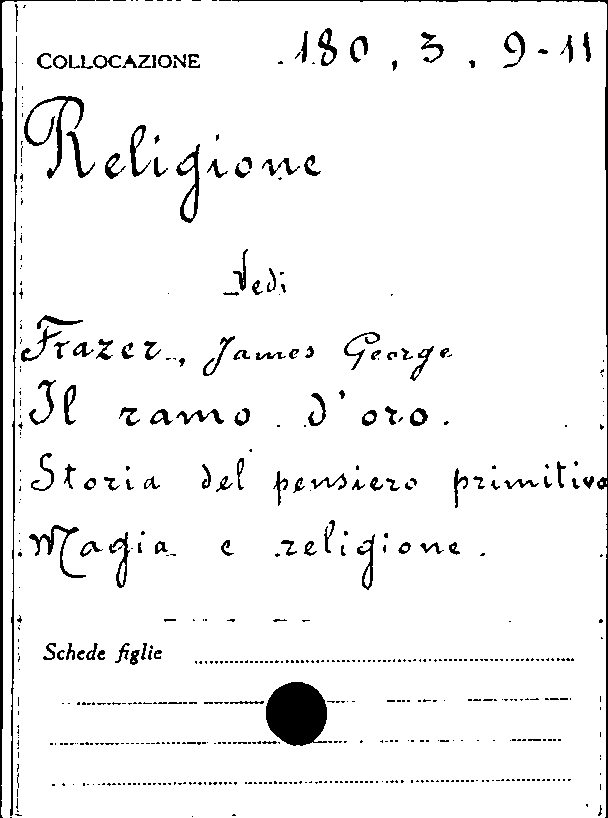 COLLOCAZIONE 180, 3, 9-11
Religione
Vedi
Frazer, James George
Il ramo d'oro.
Storia del pensiero primitivo
Magia e religione.
Schede figlie